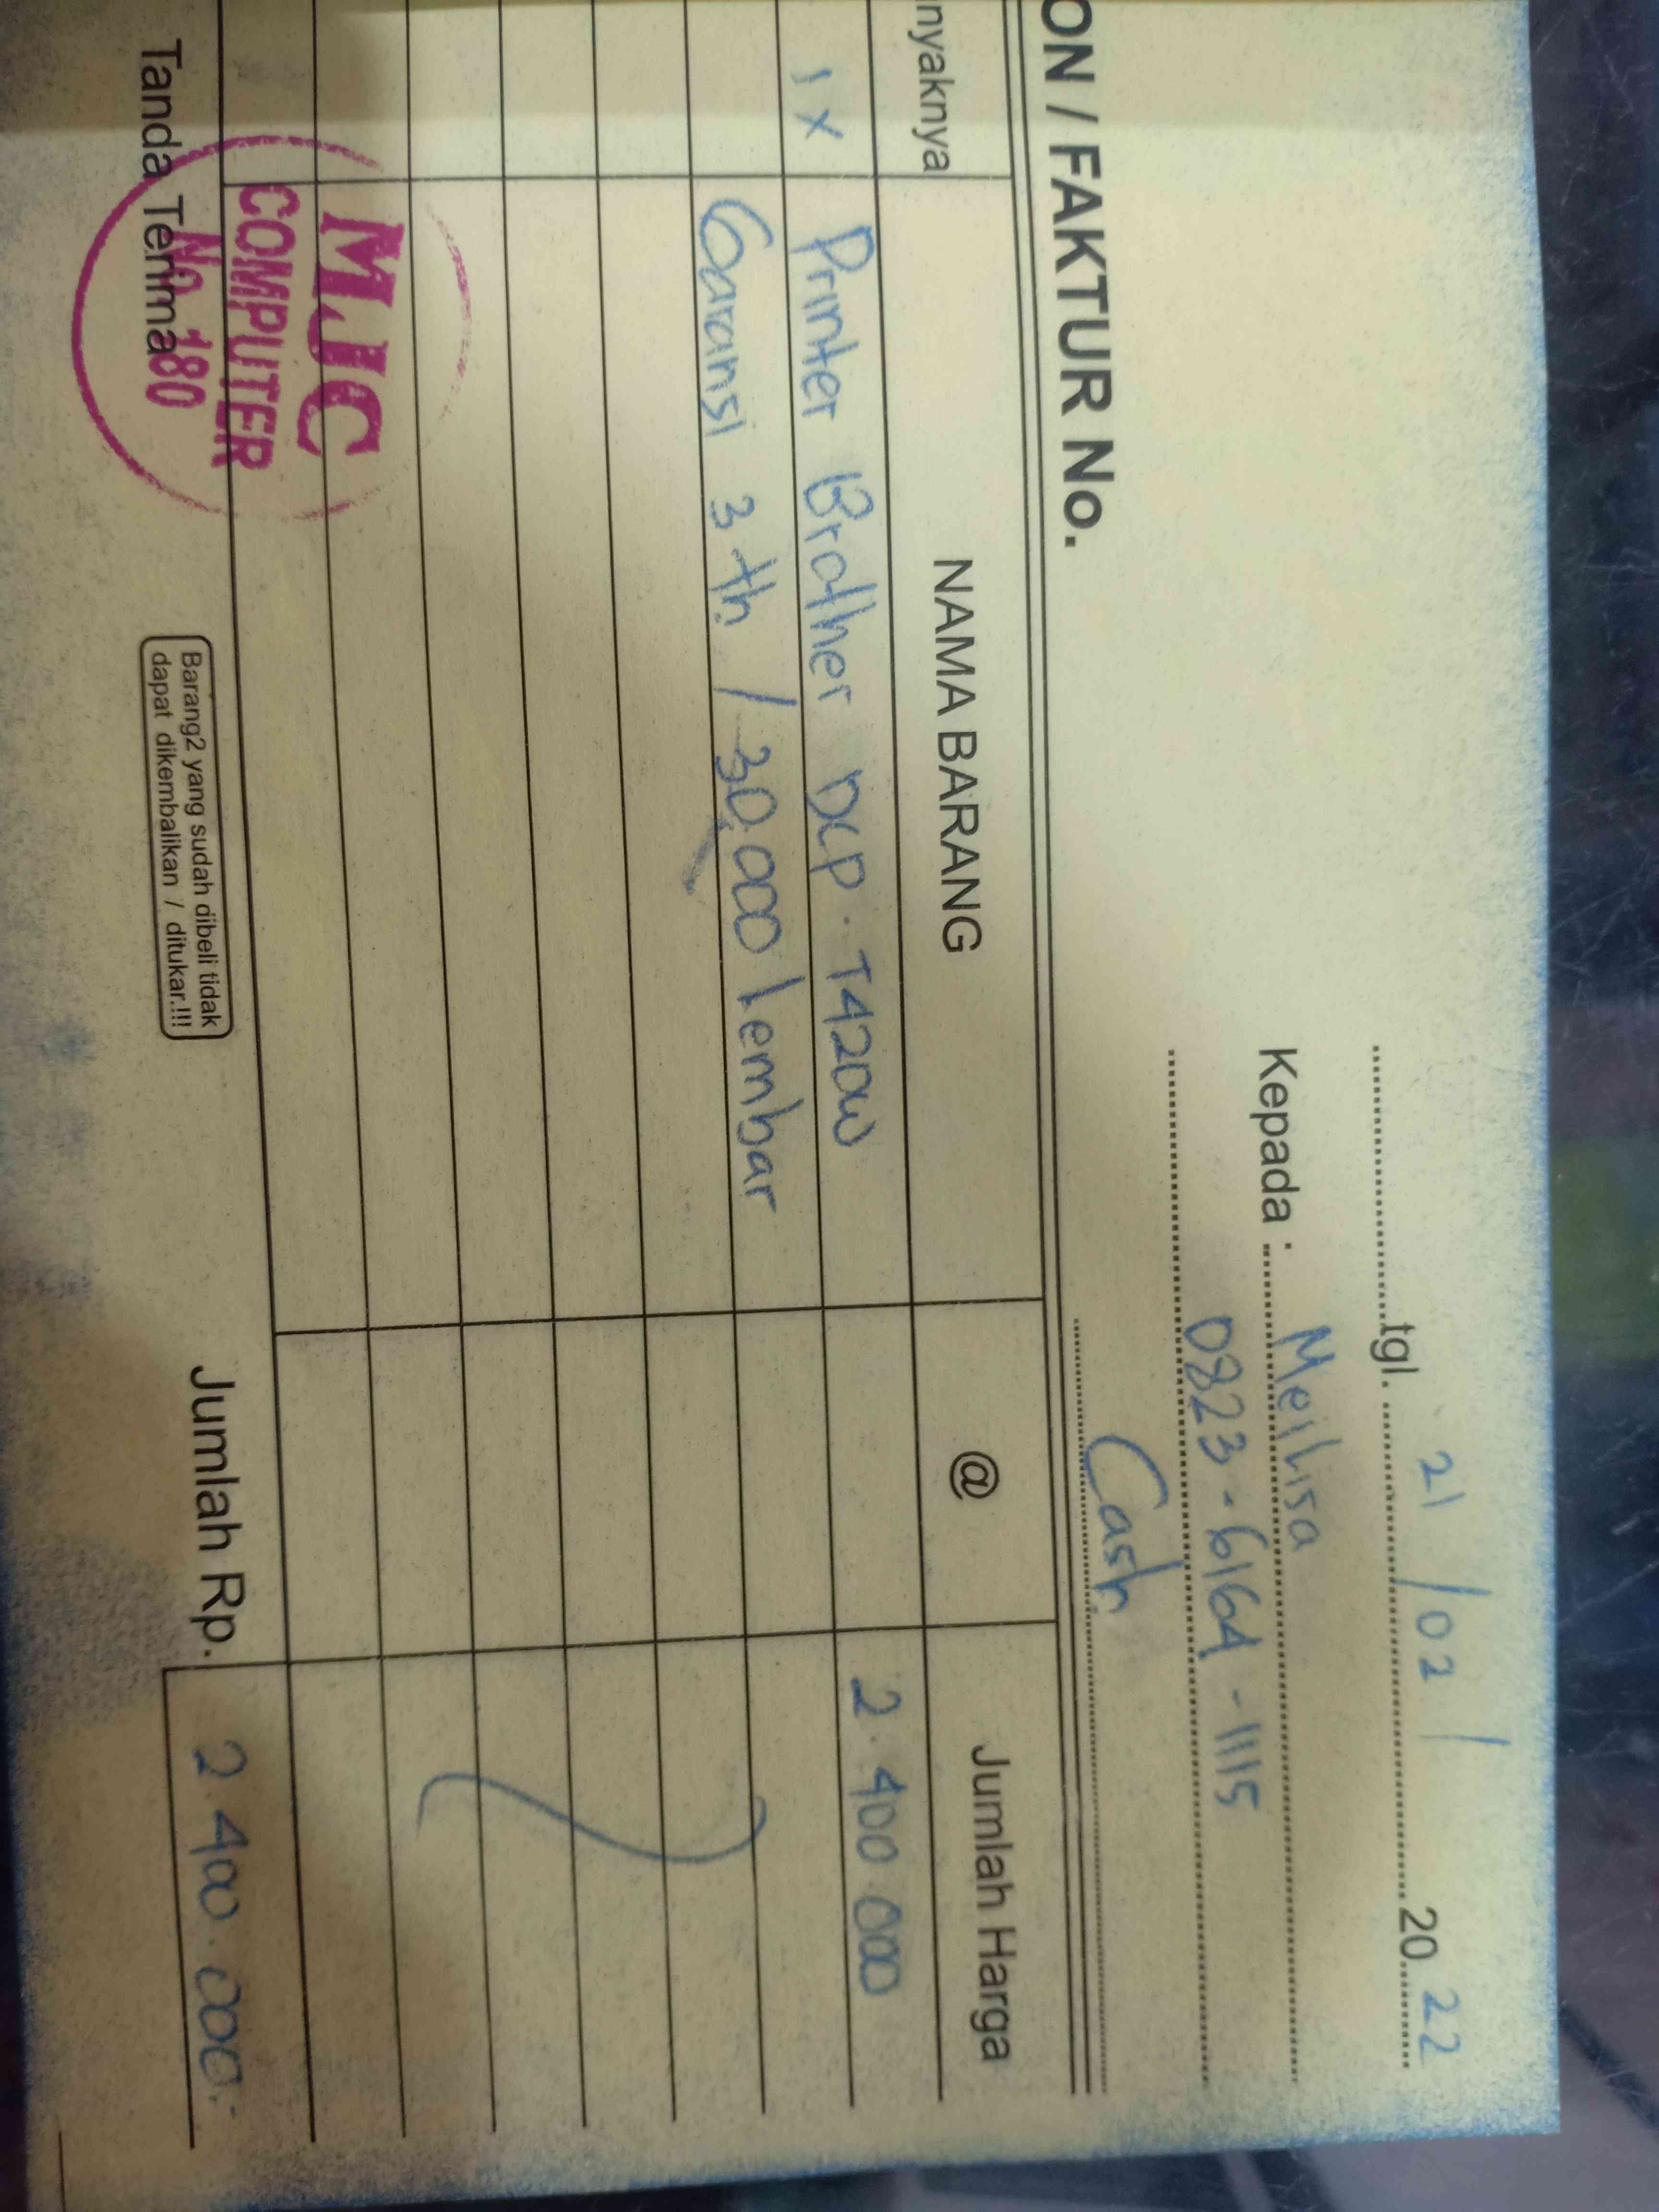 tgl. 21 / 02 / 20 22
Kepada : Meilisa
0823-6164-1115
Cash
ON / FAKTUR No.
nyaknya NAMA BARANG @ Jumlah Harga
1 x Printer Brother DCP. T420W 2.400 000
Garansi 3 th / 30.000 lembar
MJC
COMPUTER
No. 180
Tanda Terima
Barang2 yang sudah dibeli tidak
dapat dikembalikan / ditukar.!!!
Jumlah Rp. 2.400.000.-